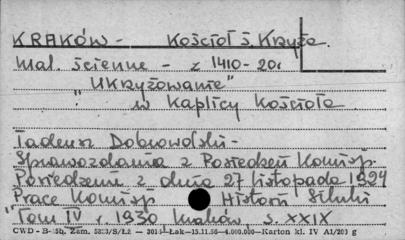 KRAKÓW - Kościół ś. Krzyża.
Mal. ścienne - z 1410-20r
"Ukrzyżowanie"
w Kaplicy Kościoła
Tadeusz Dobrowolski -
Sprawozdania z Posiedzeń Komisji
Posiedzenie z dnia 27 listopada 1924
Prace Komisji Historii Sztuki
"Tom IV r. 1930 Kraków, s. XXIX
CWD - B-15b, Zam. 5823/S/Łż — Łak—15.11.56—4.000.000—Karton kl. IV A1/200 g